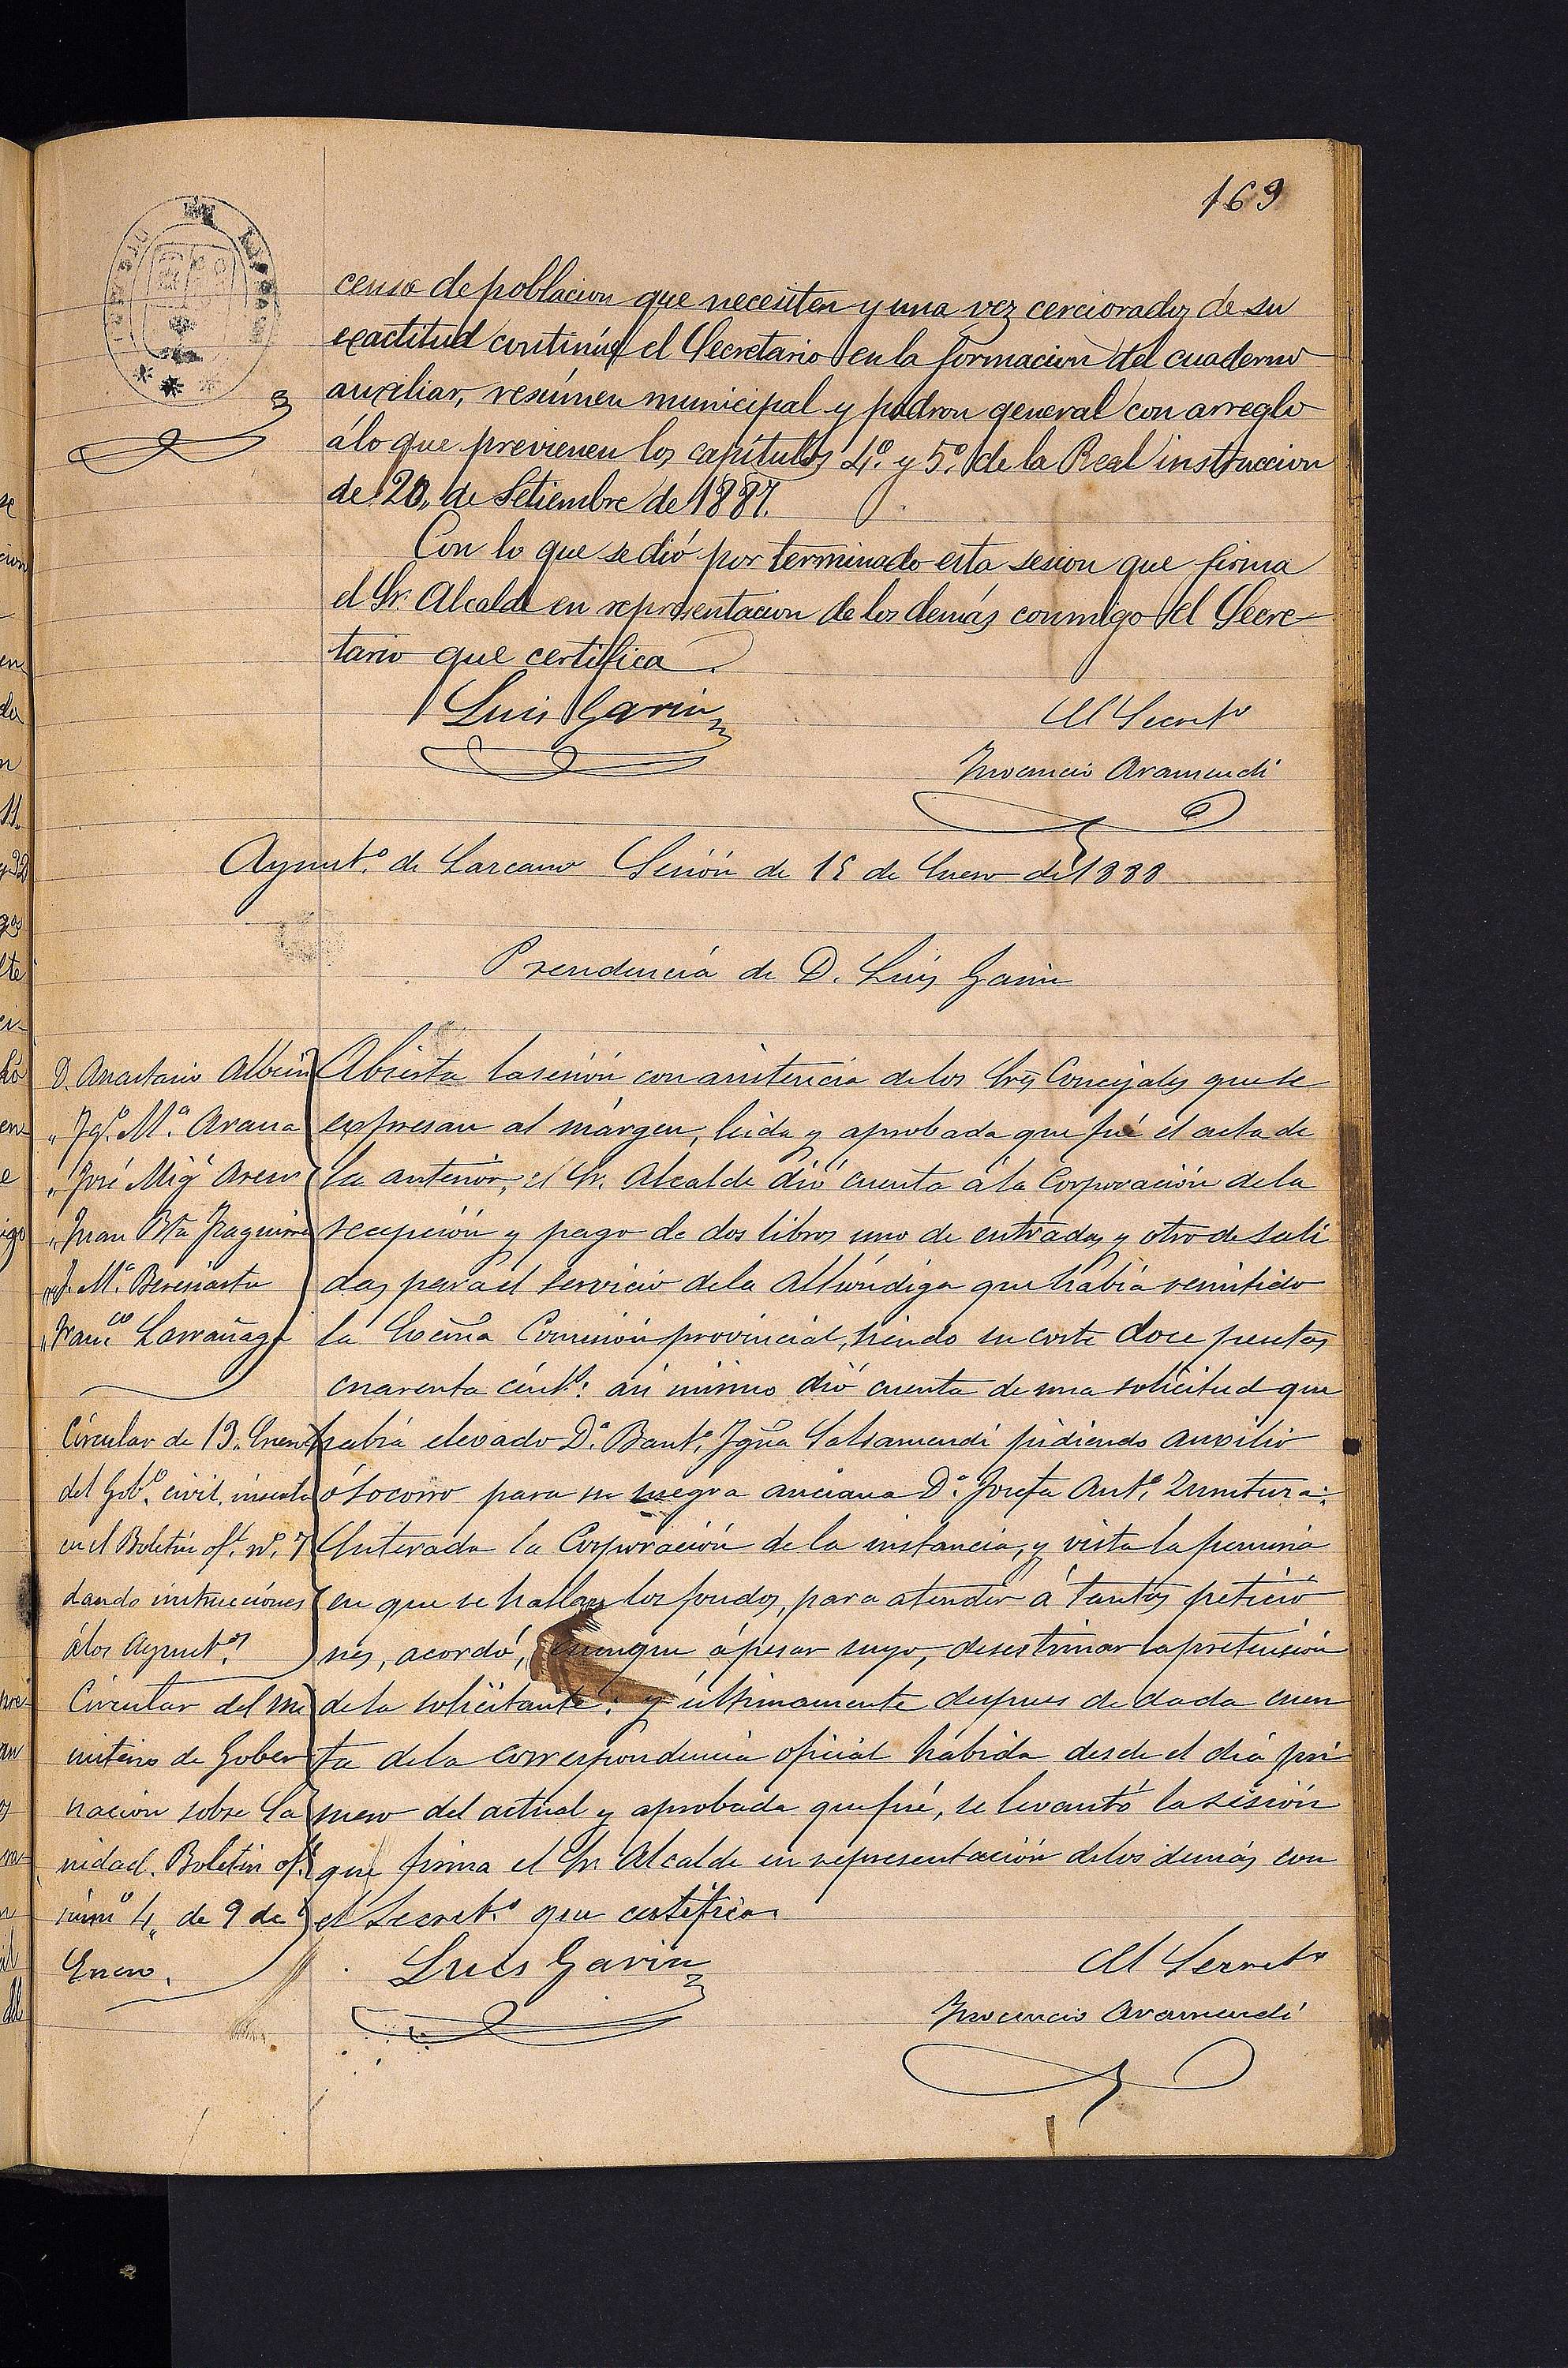 169
censo de poblacion que necesiten y una vez cerciorados de su
exactitud continúe el Secretario en la formacion del cuaderno
auxiliar, resúmen municipal y padron general con arreglo
á lo que previenen los capítulos 4.º y 5.º de la Real instruccion
de 20, de Setiembre de 1887.
Con lo que se dió por terminado esta sesion que firma
el Sr. Alcalde en representacion de los demás conmigo el Secre-
tario que certifica.
Luis Gavin
El Secret.º
Inocencio Aramendi
Ayunt.º de Lazcano Sesión de 15 de Enero de 1888
Presidencia de D. Luis Gavin
D. Anastasio Albisu
" Ig.º M.ª Arana
" José Mig.l
" Juan Bta
J. M.ª Berasiartu
" Fran.co Larrañaga
Abierta la sesión con asistencia de los Sres Concejales que se
expresan al márgen, leida y aprobada que fué el acta de
la anterior, el Sr. Alcalde dió cuenta á la Corporación de la
recepción y pago de dos libros uno de entradas y otro de sali
das para el servicio de la Alhóndiga que había remitido
la Excma Comisión provincial, siendo su coste doce pesetas
cuarenta cént.s: asi mismo dió cuenta de una solicitud que
había elevado D.ª Baut.ª Igña Salsamendi pidiendo auxilio
ó socorro para su suegra anciana D.ª Josefa Ant.ª
Enterada la Corporación de la instancia, y vista la penuria
en que se hallan los fondos, para atender á tantas peticio
nes, acordó, aunque á pesar suyo, desestimar la pretensión
de la solicitante: y últimamente despues de dada cuen
ta de la correspondencia oficial habida desde el día pri
mero del actual y aprobada que fué, se levantó la sesión
que firma el Sr. Alcalde en representación de los demás con
el Secret.º que certifica.
Circular de 13, Enero
del Gob.º civil, inserta
en el Boletín of.l n.º 7
dando instrucciones
á los Ayunt.os
Circular del mi
nisterio de Gober
nación sobre Sa
nidad. Boletín of.l
núm.º 4, de 9 de
Enero.
Luis Gavin
El Secret.º
Inocencio Aramendi